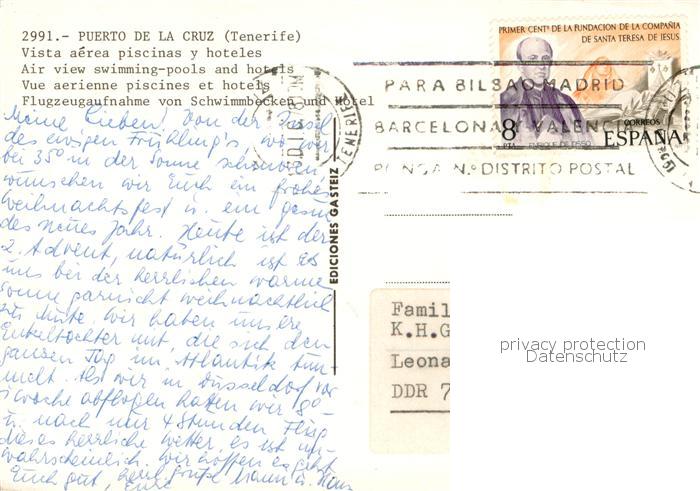 2991.- PUERTO DE LA CRUZ (Tenerife)
Vista aérea piscinas y hoteles
Air view swimming-pools and hotels
Vue aerienne piscines et hotels
Flugzeugaufnahme von Schwimmbecken und Hotel
Meine Lieben! Von der Insel
des ewigen Frühling's, wo wir
bei 35° in der Sonne schmoren
wünschen wir Euch ein frohes
Weihnachtsfest u. ein gesun
des neues Jahr. Heute ist der
2. Advent, natürlich ist es
uns bei der herrlichen warmen
Sonne garnicht weihnachtlich
zu Mute. Wir haben unsere
Enkeltochter mit, die sich den
ganzen Tag im Atlantik tum
melt. Als wir in Düsseldorf vor
1 Woche abflogen hatten wir 8°
u. nach nur 4 Stunden Flug
dieses herrliche Wetter, es ist un-
wahrscheinlich. Wir hoffen es geht
Euch gut, herzl. Grüße u.
Eure
EDICIONES GASTEIZ
TENERIFE
PRIMER CENTº DE LA FUNDACION DE LA COMPAÑIA
DE SANTA TERESA DE JESUS
8
PTA
ENRIQUE DE OSSO
CORREOS
ESPAÑA
PARA BILBAO MADRID
BARCELONA VALENCIA
PONGA N.º DISTRITO POSTAL
Famil
K.H.G
Leona
DDR 7
privacy protection
Datenschutz